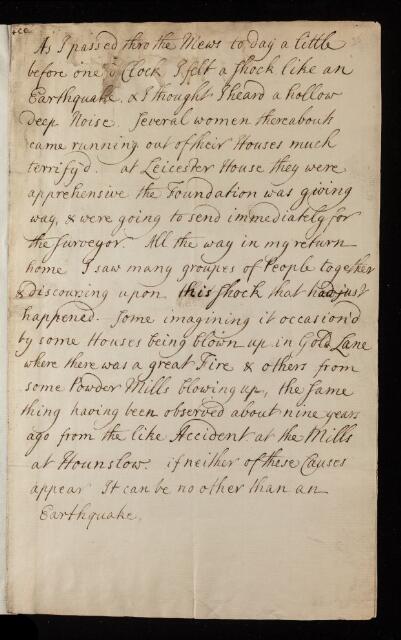 As I passed thro the Mews to day a little
before one o Clock I felt a shock like an
Earthquake, & I thought I heard a hollow
deep Noise. Several women thereabouts
came running out of their Houses much
terrify'd. at Leicester House they were
apprehensive the Foundation was giving
way, & were going to send immediately for
the Surveyor. All the way in my return
home I saw many groupes of People together
& discoursing upon this shock that had just
happened. Some imagining it occasion'd
by some Houses being blown up in Gold Lane
where there was a great Fire & others from
some Powder Mills blowing up, the same
thing having been observed about nine years
ago from the like Accident at the Mills
at Hounslow. if neither of these Causes
appear It can be no other than an
Earthquake.